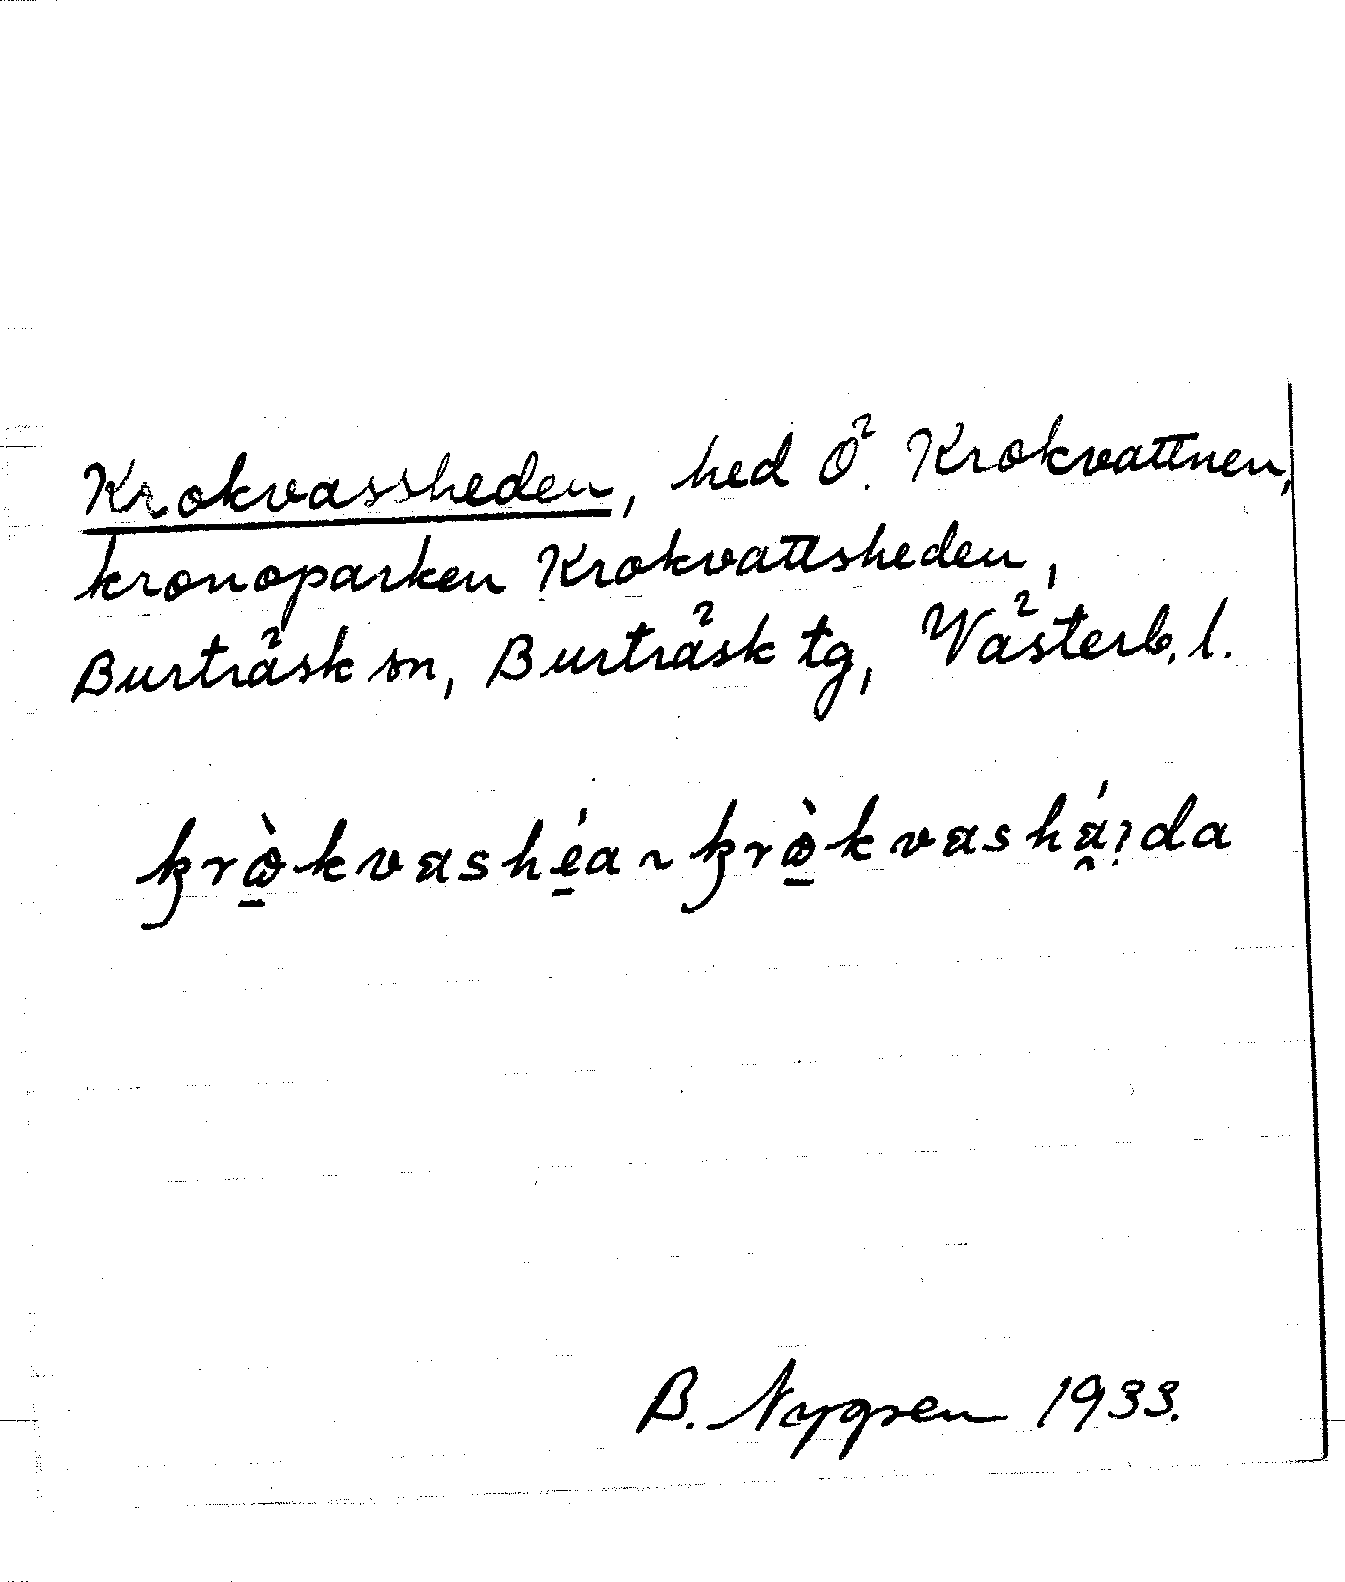 Krokvassheden, hed Ö. Krokvattnen,
kronoparken Krokvattsheden,
Burträsk sn, Burträsk tg, Västerb. l.
B. Nygren 1933.